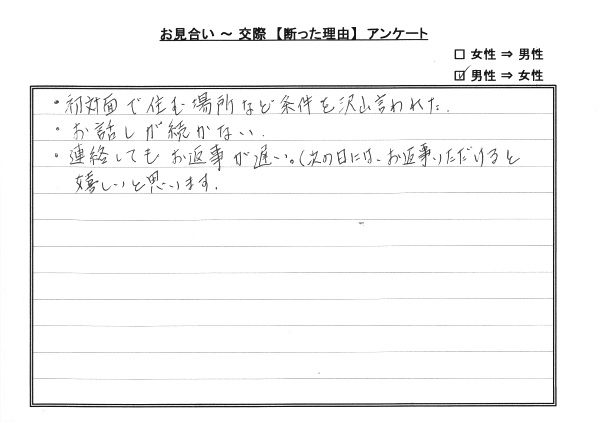 お見合い ～ 交際 【断った理由】 アンケート
□ 女性 ⇒ 男性
☑ 男性 ⇒ 女性
・初対面で住む場所など条件を沢山言われた.
・お話しが続かない.
・連絡してもお返事が遅い。(次の日には、お返事いただけると
嬉しいと思います.